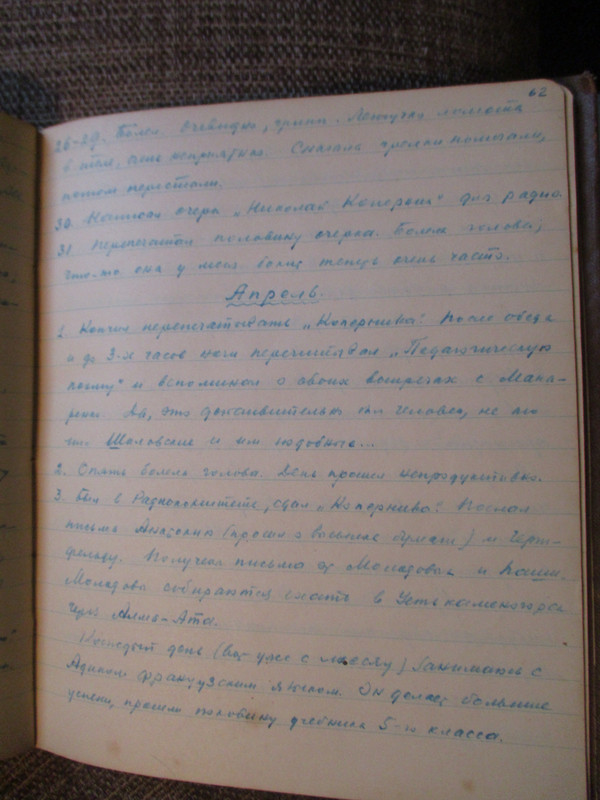 62
26-29. Болел. Очевидно, грипп. Летучая ломота
в теле, очень неприятная. Сначала грелки помогали,
потом перестали.
30. Написал очерк „Николай Коперник" для радио.
31. Перепечатал половину очерка. Болела голова;
что-то она у меня болит теперь очень часто.
Апрель.
1. Кончил перепечатывать „Коперника". После обеда
и до 3-х часов ночи перечитывал „Педагогическую
поэму" и вспоминал о своих встречах с Мака-
ренко. Да, это действительно был человек, не то
что и им подобные...
2. Опять болела голова. День прошел непродуктивно.
3. Был в Радиокомитете, сдал „Коперника". Послал
письма (просил о высылке бумаги) и
Получил письма от Молодовых и
Молодовы собираются ехать в Усть-каменогорск
через Алма-Ата.
Каждый день (вот уже с месяц) занимаюсь с
Адиком французским языком. Он делает большие
успехи, прошли половину учебника 5-го класса.